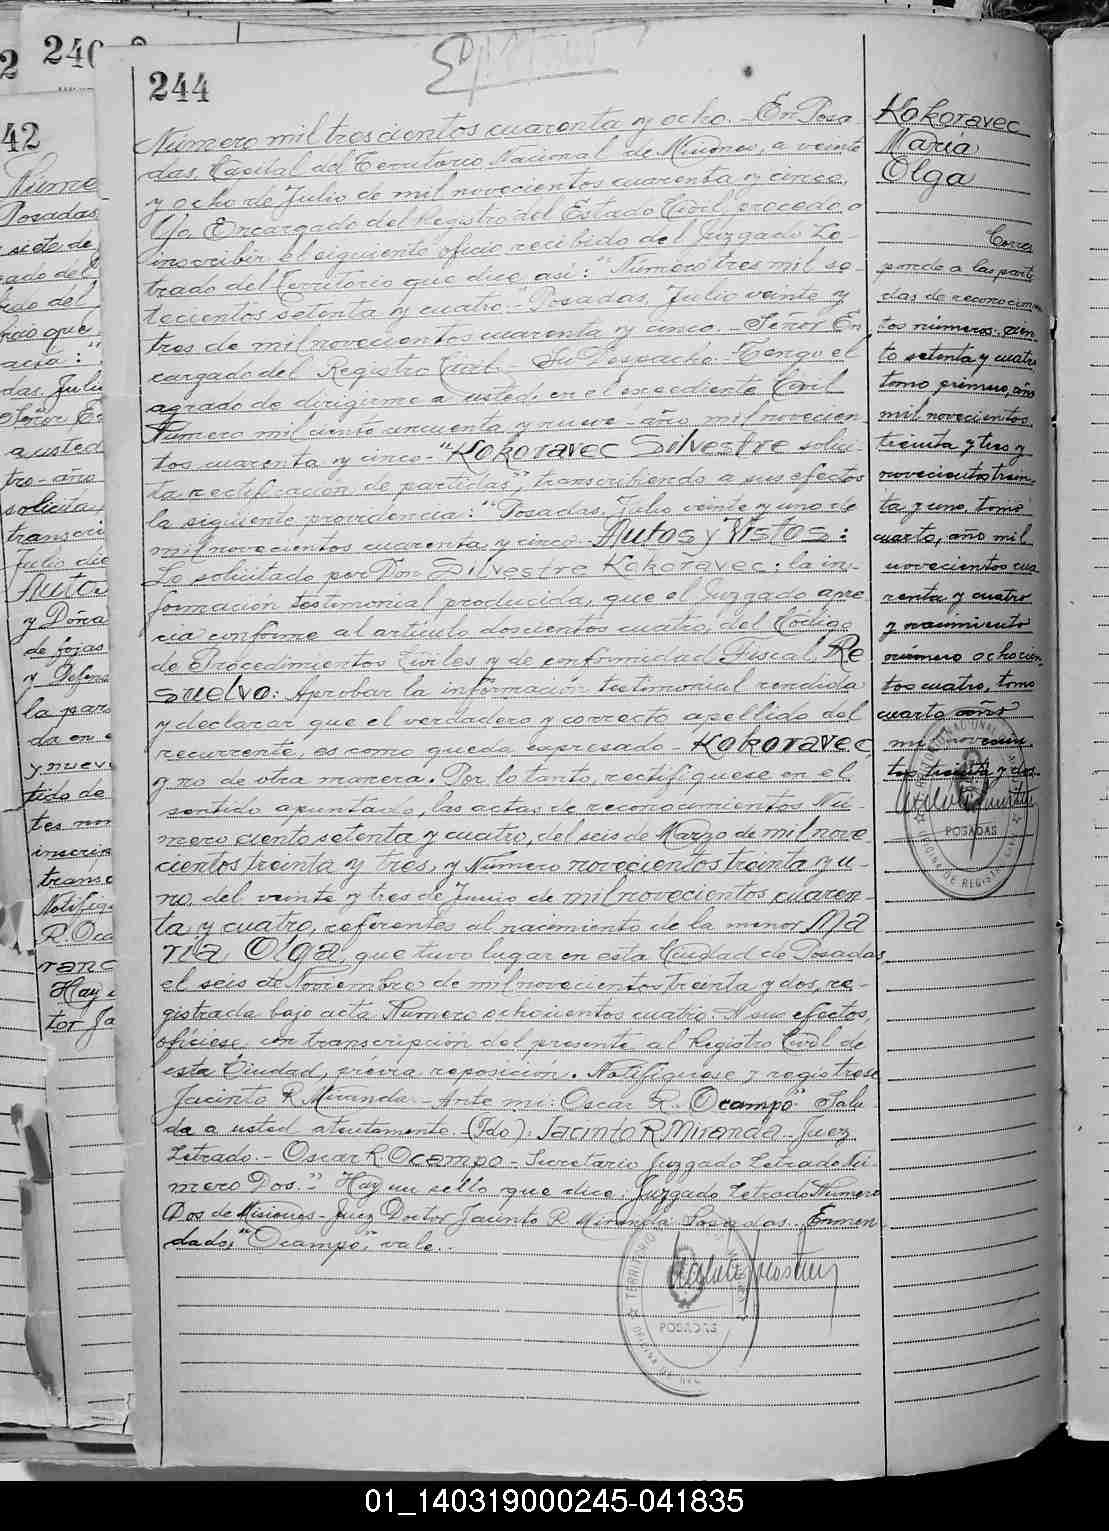 244
Número mil trescientos cuarenta y ocho.- En Posa
das, Capital del Territorio Nacional de Misiones, a veinte
y ocho de Julio de mil novecientos cuarenta y cinco,
Yo, Encargado del Registro del Estado Civil, procedo a
inscribir el siguiente oficio recibido del Juzgado Le-
trado del Territorio que dice así: "Número tres mil se-
tecientos setenta y cuatro.- Posadas, Julio veinte y
tres de mil novecientos cuarenta y cinco.- Señor En
cargado del Registro Civil. Su Despacho.- Tengo el
agrado de dirigirme a usted, en el expediente Civil
Número mil ciento cincuenta y nueve- año mil novecien
tos cuarenta y cinco- "Kokoravec Silvestre solici-
ta rectificación de partidas", transcribiendo a sus efectos
la siguiente providencia: "Posadas, Julio veinte y uno de
mil novecientos cuarenta y cinco.- Autos y Vistos:
Lo solicitado por Don Silvestre Kokoravec: la in-
formación testimonial producida, que el Juzgado apre
cia conforme al artículo doscientos cuatro, del Código
de Procedimientos Civiles y de conformidad Fiscal, Re
suelvo: Aprobar la información testimonial rendida
y declarar que el verdadero y correcto apellido del
recurrente, es como queda expresado- Kokoravec,
y no de otra manera. Por lo tanto, rectifíquese en el
sentido apuntado, las actas de reconocimientos Nú-
mero ciento setenta y cuatro, del seis de Marzo de mil nove
cientos treinta y tres, y Número novecientos treinta y u-
no, del veinte y tres de Junio de mil novecientos cuaren-
ta y cuatro, referentes al nacimiento de la menor Ma
ría Olga, que tuvo lugar en esta Ciudad de Posadas
el seis de Noviembre de mil novecientos treinta y dos, re-
gistrada bajo acta Número ochocientos cuatro. A sus efectos,
ofíciese con transcripción del presente al Registro Civil de
esta Ciudad, previa reposición. Notifíquese y regístrese
Jacinto R Miranda.- Ante mí: Oscar R. Ocampo" Salu
da a usted atentamente. (Fdo): Jacinto R Miranda.- Juez
Letrado.- Oscar R. Ocampo- Secretario Juzgado Letrado Nú-
mero Dos."- Hay un sello que dice: Juzgado Letrado Número
Dos de Misiones- Juez Doctor Jacinto R Miranda Posadas. Enmen
dado: "Ocampo," vale.-
POSADAS
Kokoravec
María
Olga
Corres
ponde a las parti
das de reconocimien
tos números: cien
to setenta y cuatro
tomo primero, año
mil novecientos
treinta y tres y
novecientos trein
ta y uno, tomo
cuarto, año mil
novecientos cua
renta y cuatro
y nacimiento
número ochocien
tos cuatro, tomo
cuarto año
mil novecien
tos treinta y dos.
POSADAS
01_140319000245-041835